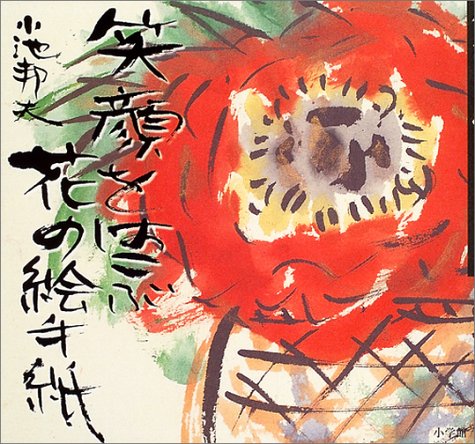 笑顔をはこぶ
花の絵手紙
小池邦夫
小学館